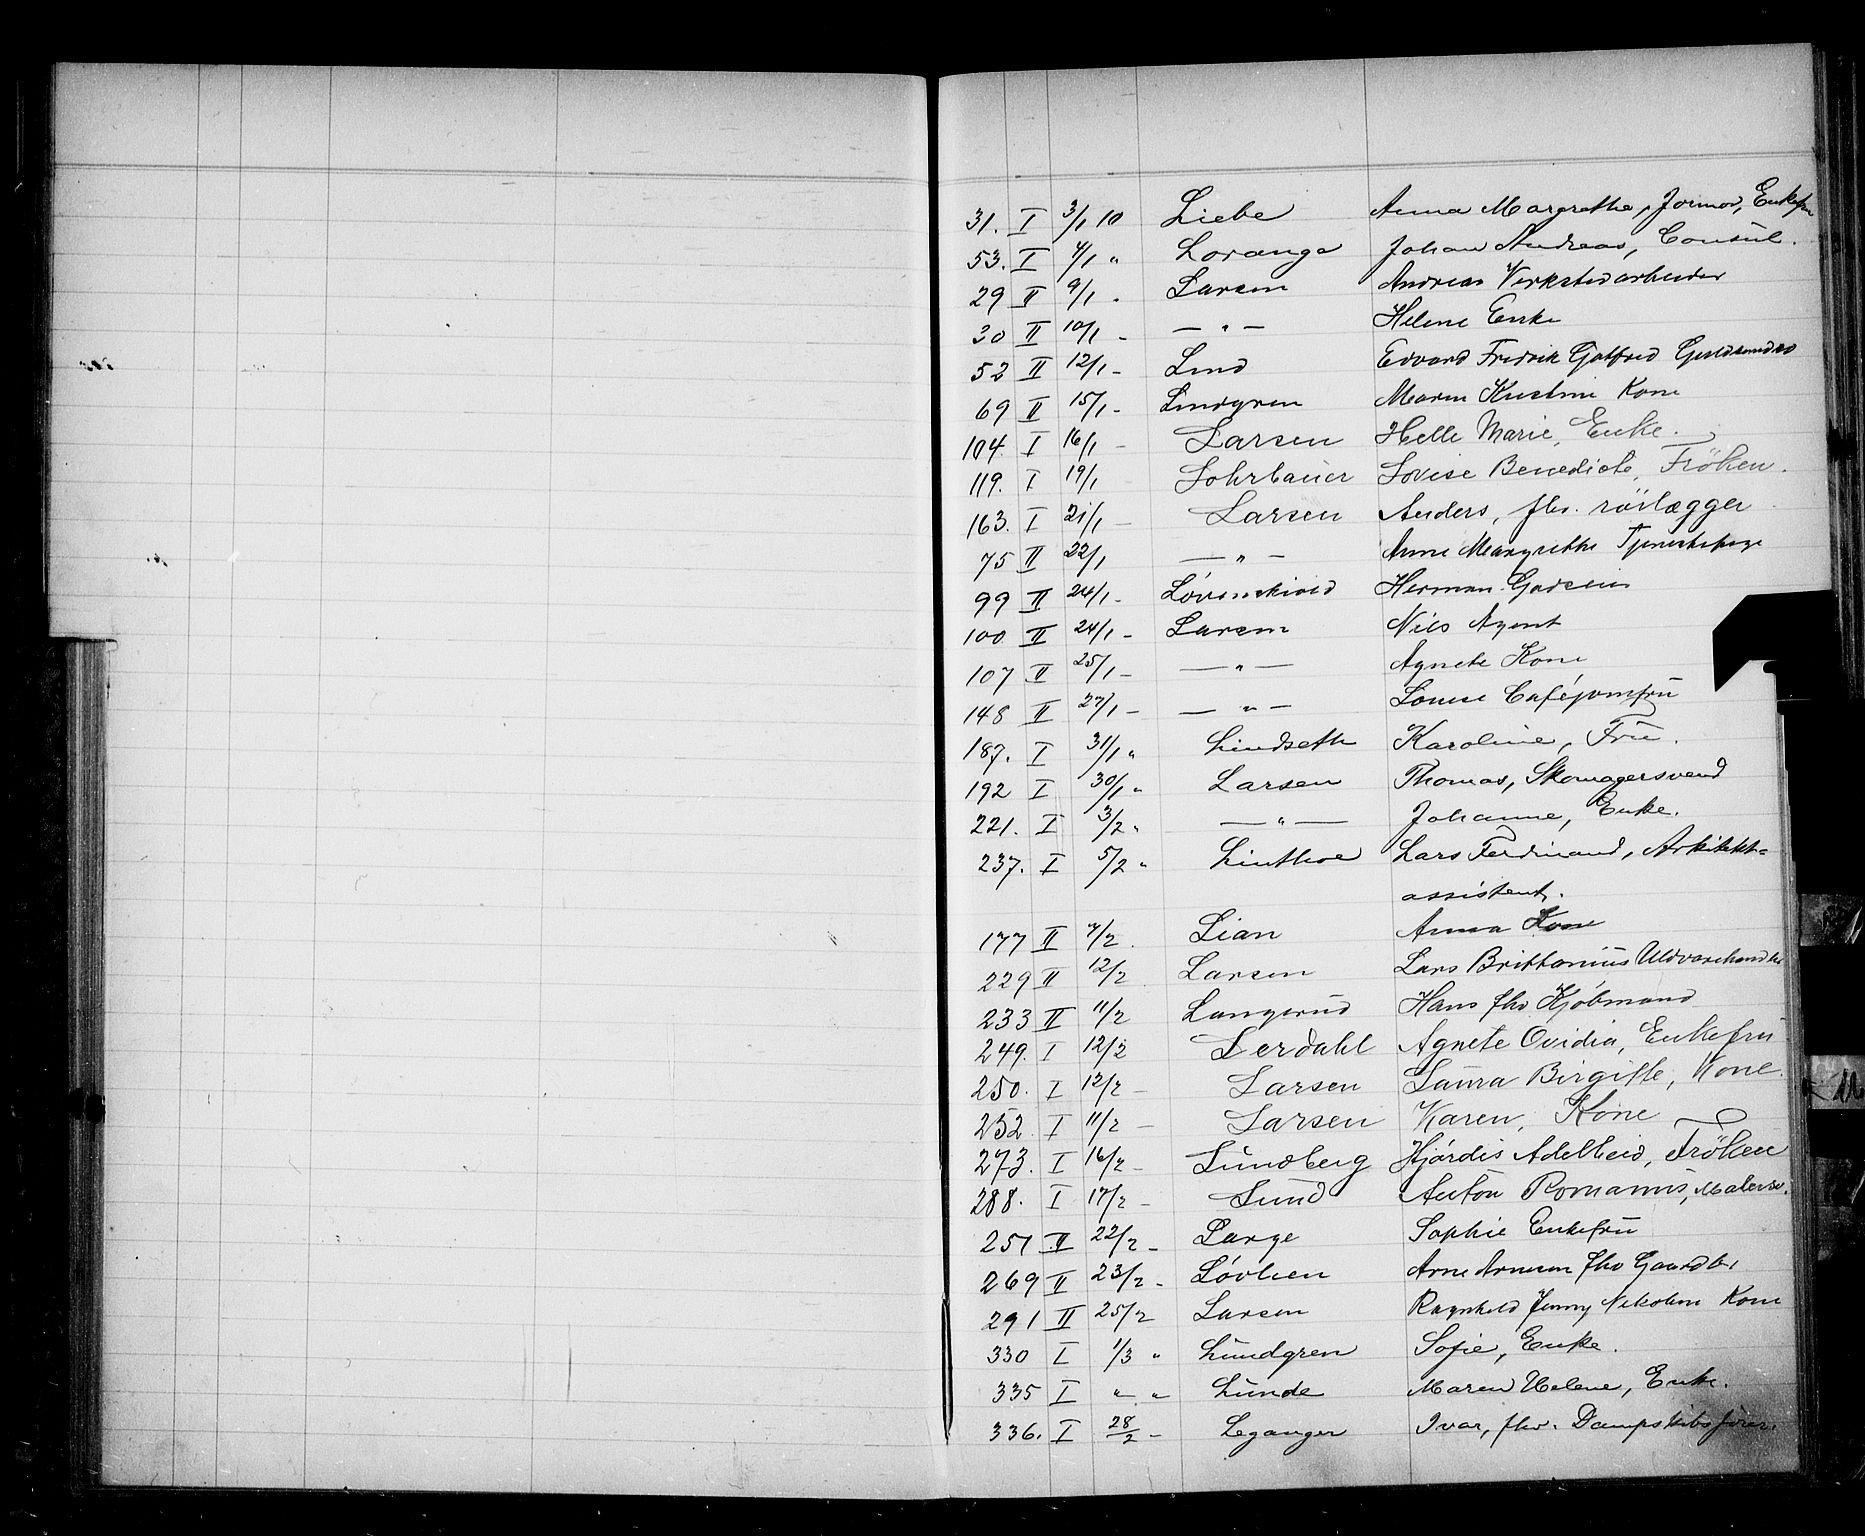 31. I 3/1 10 Liebe Anna Margrethe, Jormor, Enkefru
53. I 4/1 " Lorange Johan Andreas, Consul.
29 II 9/1 - Larsen Andreas Verkstedarbeider
30 II 10/1 - — " — Helene Enke
52 II 12/1 - Lind Edvard Fredrik Gotfred
69 II 15/1 - Lindgren Maren Kristine Kone
104. I 16/1 - Larsen Helle Marie, Enke.
119. I 19/1 Lohrbauer Lovise Benedicte, Fröken.
163. I 21/1 - Larsen Anders, fhv. rörlægger
75 II 22/1 — " — Anne Margrethe Tjenestepige
99 II 24/1 - Løvenskiold Herman Godseier
100 II 24/1 - Larsen Nils Agent
107 II 25/1 - — " — Agnete Kone
148 II 27/1 - — " — Louise Caféjomfru
187. I 31/1 " Lindseth Karoline, Fru.
192 I 30/1 " Larsen Thomas, Skomagersvend
221. I 3/2 " — " — Johanne, Enke.
237. I 5/2 " Linthoe Lars Ferdinand, Arkitekt=
assistent.
177 II 7/2 . Lian Anna Kone
229 II 12/2 Larsen Lars Brittanius Uldvarehandler
233 II 11/2 Langerud Hans fhv Kjøbmand
249. I 12/2 Lerdahl Agnete Ovidia, Enkefru
250. I 12/2 - Larsen Laura Birgitte, Kone.
252 I 11/2 - Larsen Karen, Kone
273. I 16/2 - Lundberg Hjørdis Adelheid, Fröken
288. I 17/2 - Lund Anton Romanus, Malersv.
251 II 22/2 - Lange Sophie Enkefru
269 II 23/2 - Løvlien Arne Arnesen fhv Gaardbr
291 II 25/2 Larsen Ragnhild Jenny Nikoline Kone
330 I 1/3 " Lundgren Sofie, Enke.
335 I " " Lunde Maren Helene, Enke.
336. I 28/2 - Leganger Ivar, fhv. Dampskibsfører.